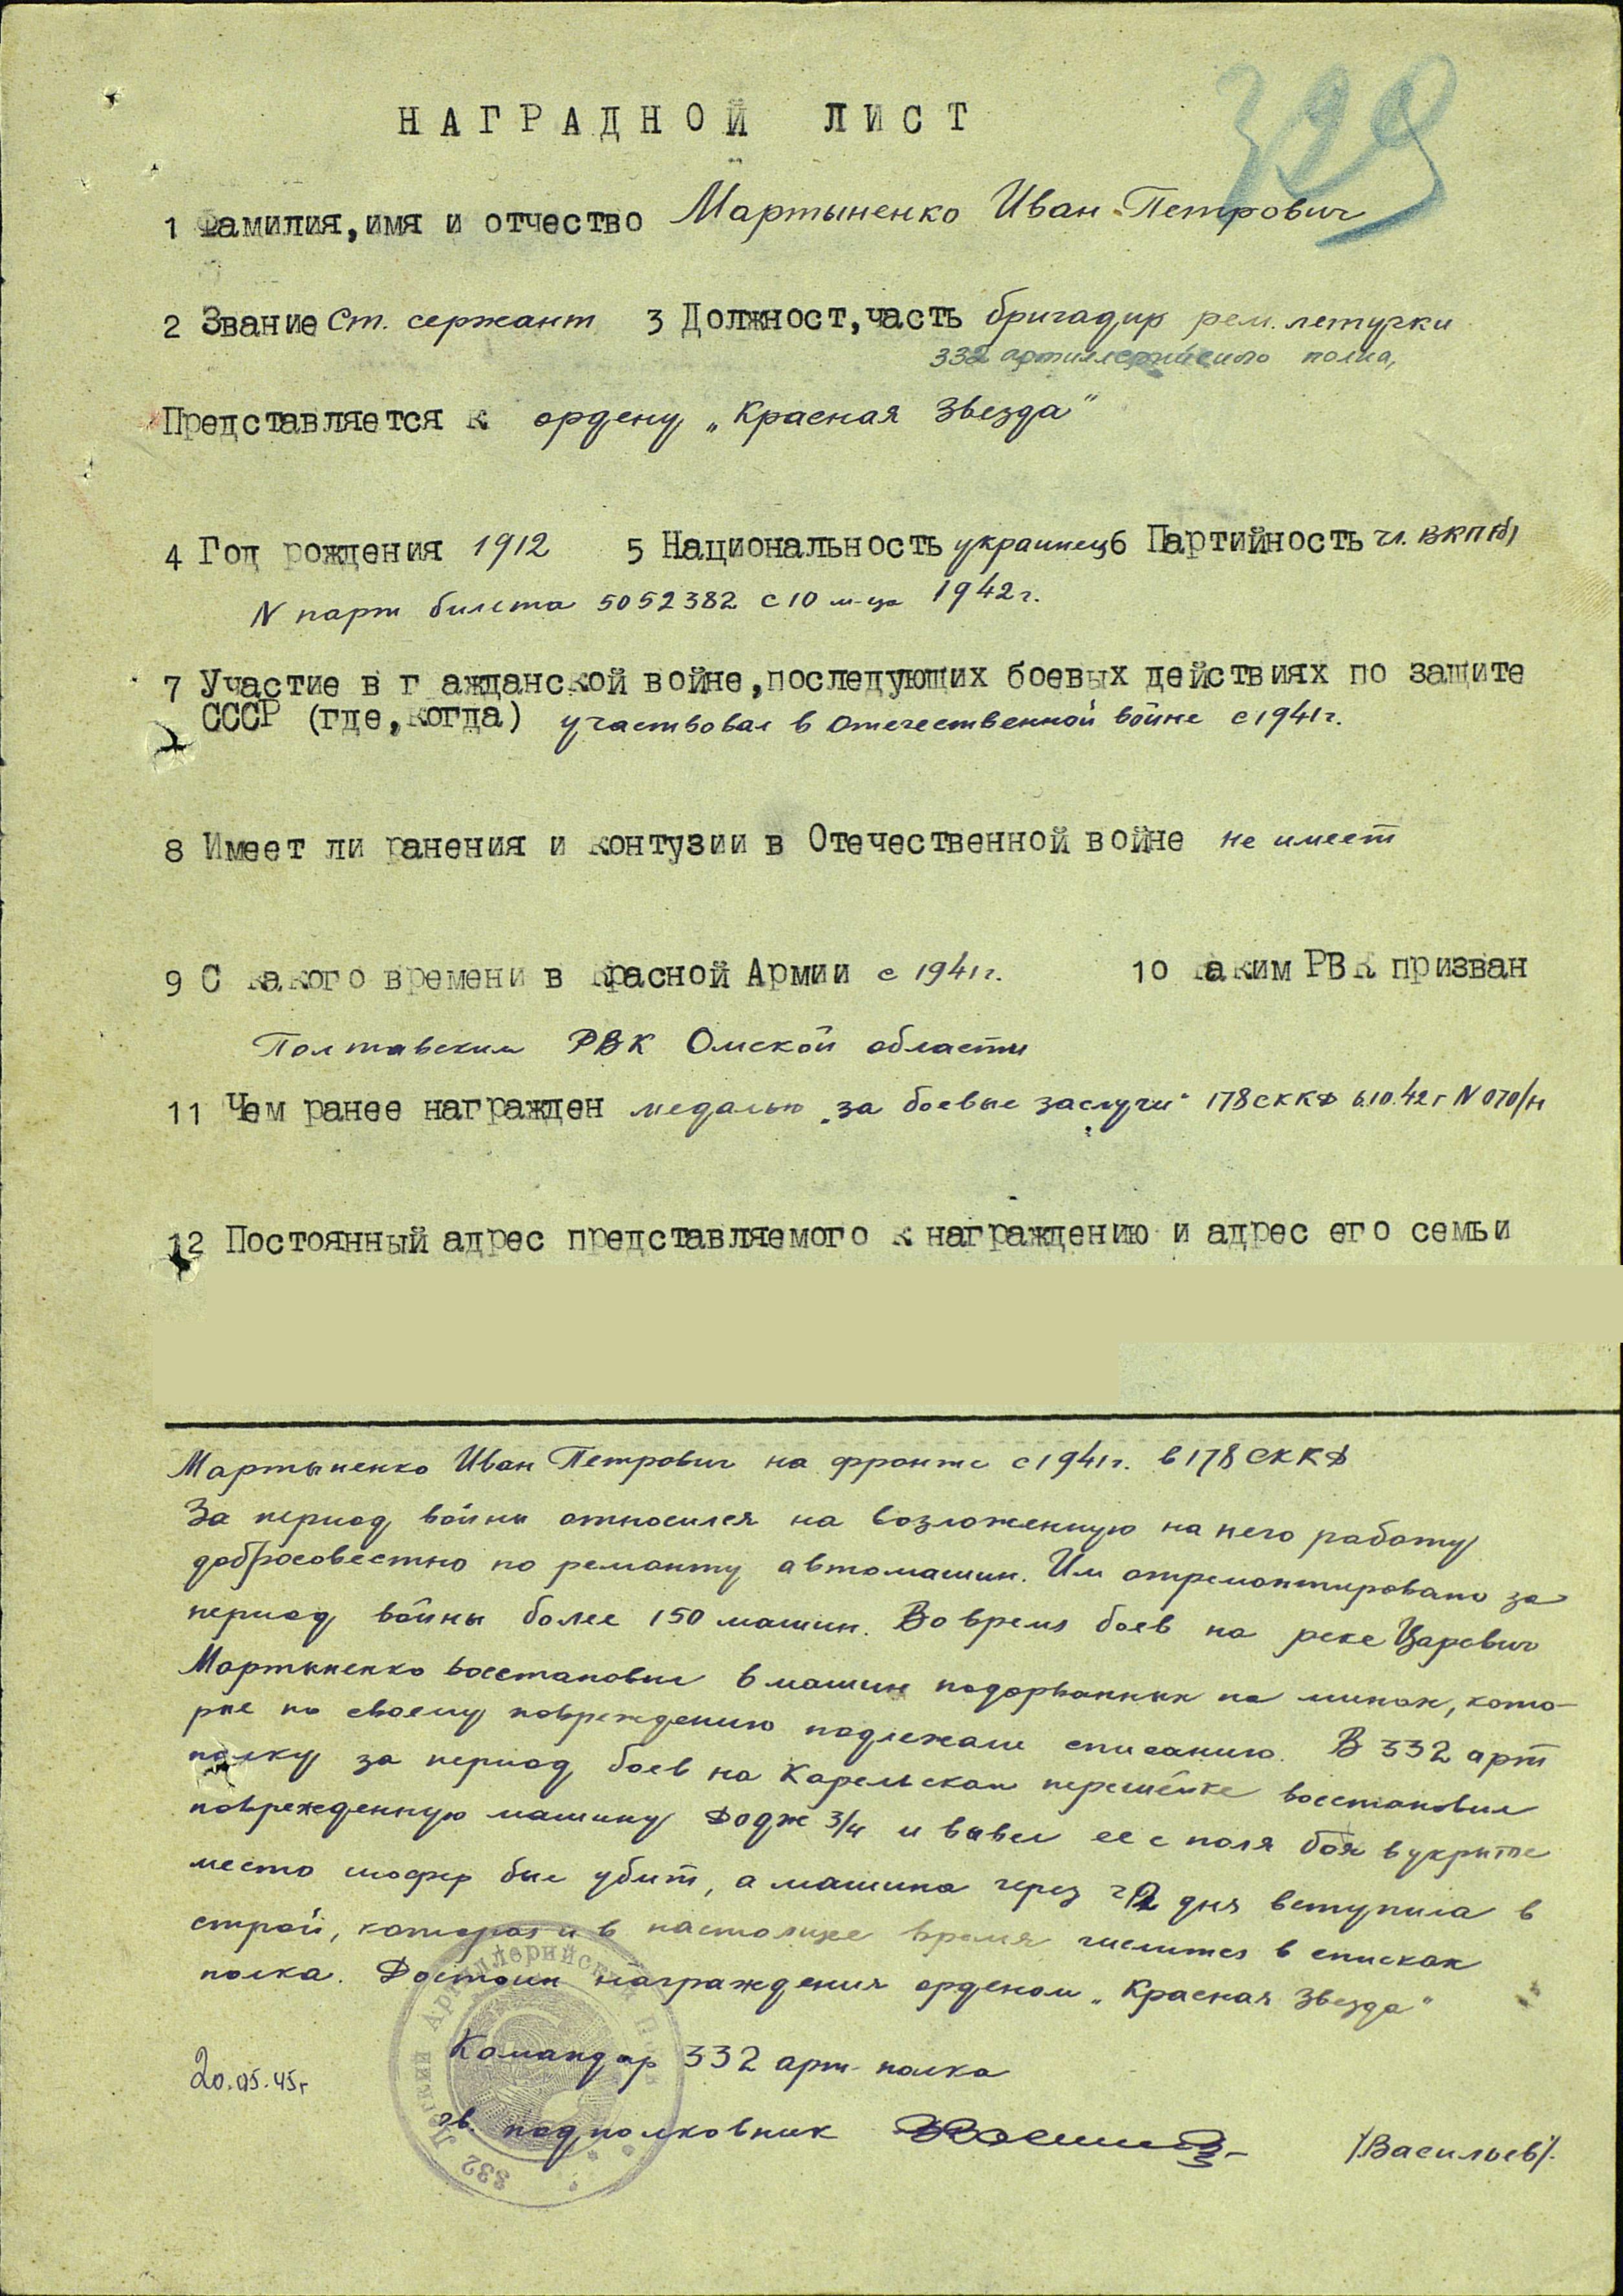 329
НАГРАДНОЙ ЛИСТ
1 Фамилия, имя и отчество Мартыненко Иван Петрович
2 Звание Ст. сержант 3 Должност, часть бригадир рем. летучки
332 артиллерийского полка,
Представляется к ордену „Красная Звезда"
4 Год рождения 1912 5 Национальность украинец 6 Партийность чл. ВКП(б)
N парт билета 5052382 с 10 м-ца 1942 г.
7 Участие в г ажданской войне, последующих боевых действиях по защите
СССР (где, когда) участвовал в Отечественной войне с 1941 г.
8 Имеет ли ранения и контузии в Отечественной войне не имеет
9 С какого времени в Красной Армии с 1941 г. 10 Каким РВК призван
Полтавским РВК Омской области
11 Чем ранее награжден медалью „за боевые заслуги" 178 СККД 6.10.42 г N 070/н
12 Постоянный адрес представляемого к награждению и адрес его семьи
Мартыненко Иван Петрович на фронте с 1941 г. в 178 СККД
За период войны относился на возложенную на него работу
добросовестно по ремонту автомашин. Им отремонтировано за
период войны более 150 машин. Во время боев на реке Царевич
Мартыненко восстановил 6 машин подорванных на минах, кото-
рые по своему повреждению подлежали списанию. В 332 арт
полку за период боев на Карельском перешейке восстановил
поврежденную машину Додж 3/4 и вывел ее с поля боя в укрытое
место шофер был убит, а машина через 2 дня вступила в
строй, которая и в настоящее время числится в списках
полка. Достоин награждения орденом „Красная Звезда"
Командир 332 арт полка
20.05.45 г
гв. подполковник /Васильев/.
332 Легкий Артиллерийский Полк